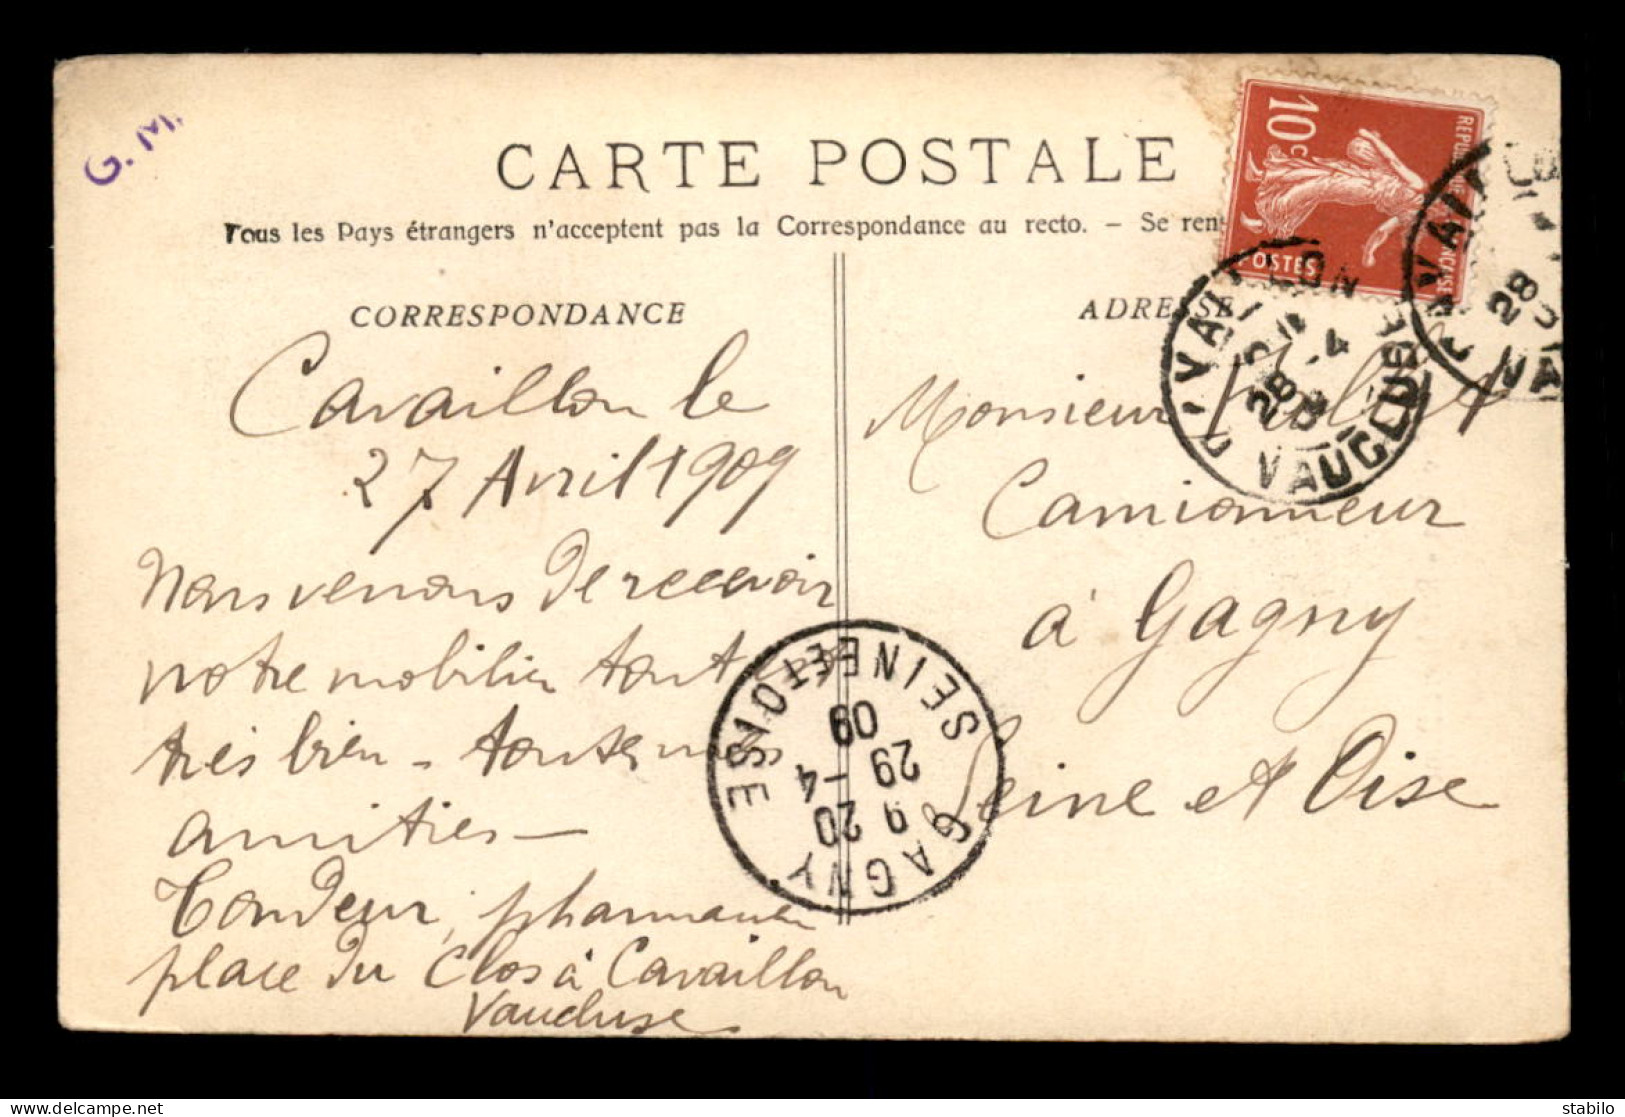 G. M.
CARTE POSTALE
Tous les Pays étrangers n'acceptent pas la Correspondance au recto. - Se ren
CORRESPONDANCE
Cavaillon le
27 Avril 1909
Nous venons de recevoir
notre mobilier tout
très bien - toutes nos
amitiés -
Tondeur, pharmacien
place du Clos à Cavaillon
Vaucluse
ADRESSE
Monsieur
Camionneur
à Gagny
Seine et Oise
10c
REPUBLIQUE FRANÇAISE
POSTES
CAVAILLON
28 -4
09
VAUCLUSE
CAVAILLON
28
VA
GAGNY
9 20
29 -4
09
SEINE ET OISE
delcampe.net
stabilo